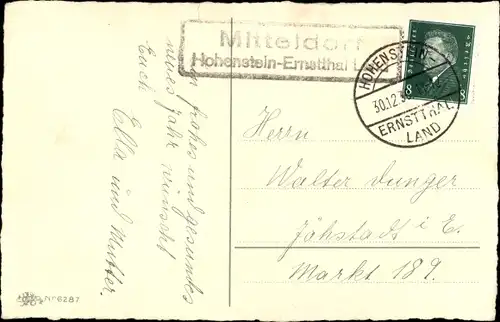 Mitteldorf
Hohenstein-Ernstthal Land
HOHENSTEIN-
30.12.3
ERNSTTHAL
LAND
8 8
Ein frohes und gesundes
neues Jahr wünscht
Euch Ella und Mutter.
Herrn
Walter Dunger
Jöhstadt i. E.
Markt 189.
No 6287